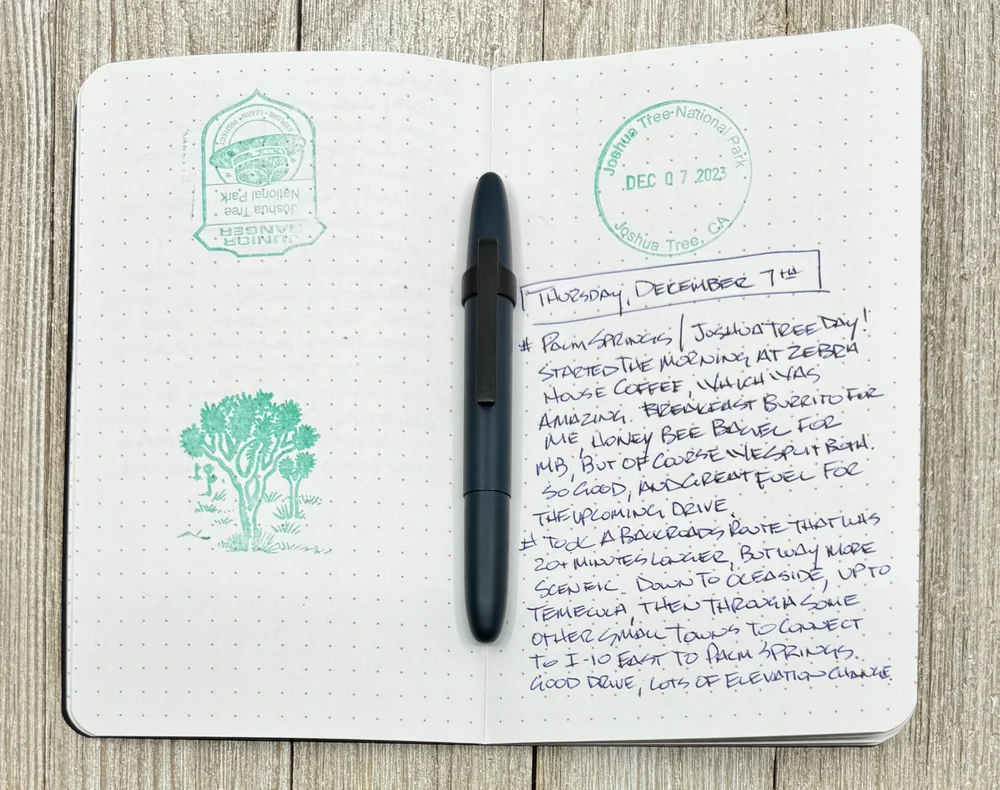 EXPLORE · LEARN · PROTECT
Joshua Tree
National Park
JUNIOR
RANGER
Joshua Tree National Park
DEC 07 2023
Joshua Tree, CA
THURSDAY, DECEMBER 7TH
# PALM SPRINGS / JOSHUA TREE DAY!
STARTED THE MORNING AT ZEBRA
HOUSE COFFEE, WHICH WAS
AMAZING. BREAKFAST BURRITO FOR
ME, HONEY BEE BAGEL FOR
MB, BUT OF COURSE WE SPLIT BOTH.
SO GOOD, AND GREAT FUEL FOR
THE UPCOMING DRIVE.
# TOOK A BACKROADS ROUTE THAT WAS
20+ MINUTES LONGER, BUT WAY MORE
SCENEIC. DOWN TO OCEASIDE, UP TO
TEMECULA, THEN THROUGH SOME
OTHER SMALL TOWNS TO CONNECT
TO I-10 EAST TO PALM SPRINGS.
GOOD DRIVE, LOTS OF ELEVATION CHANGE